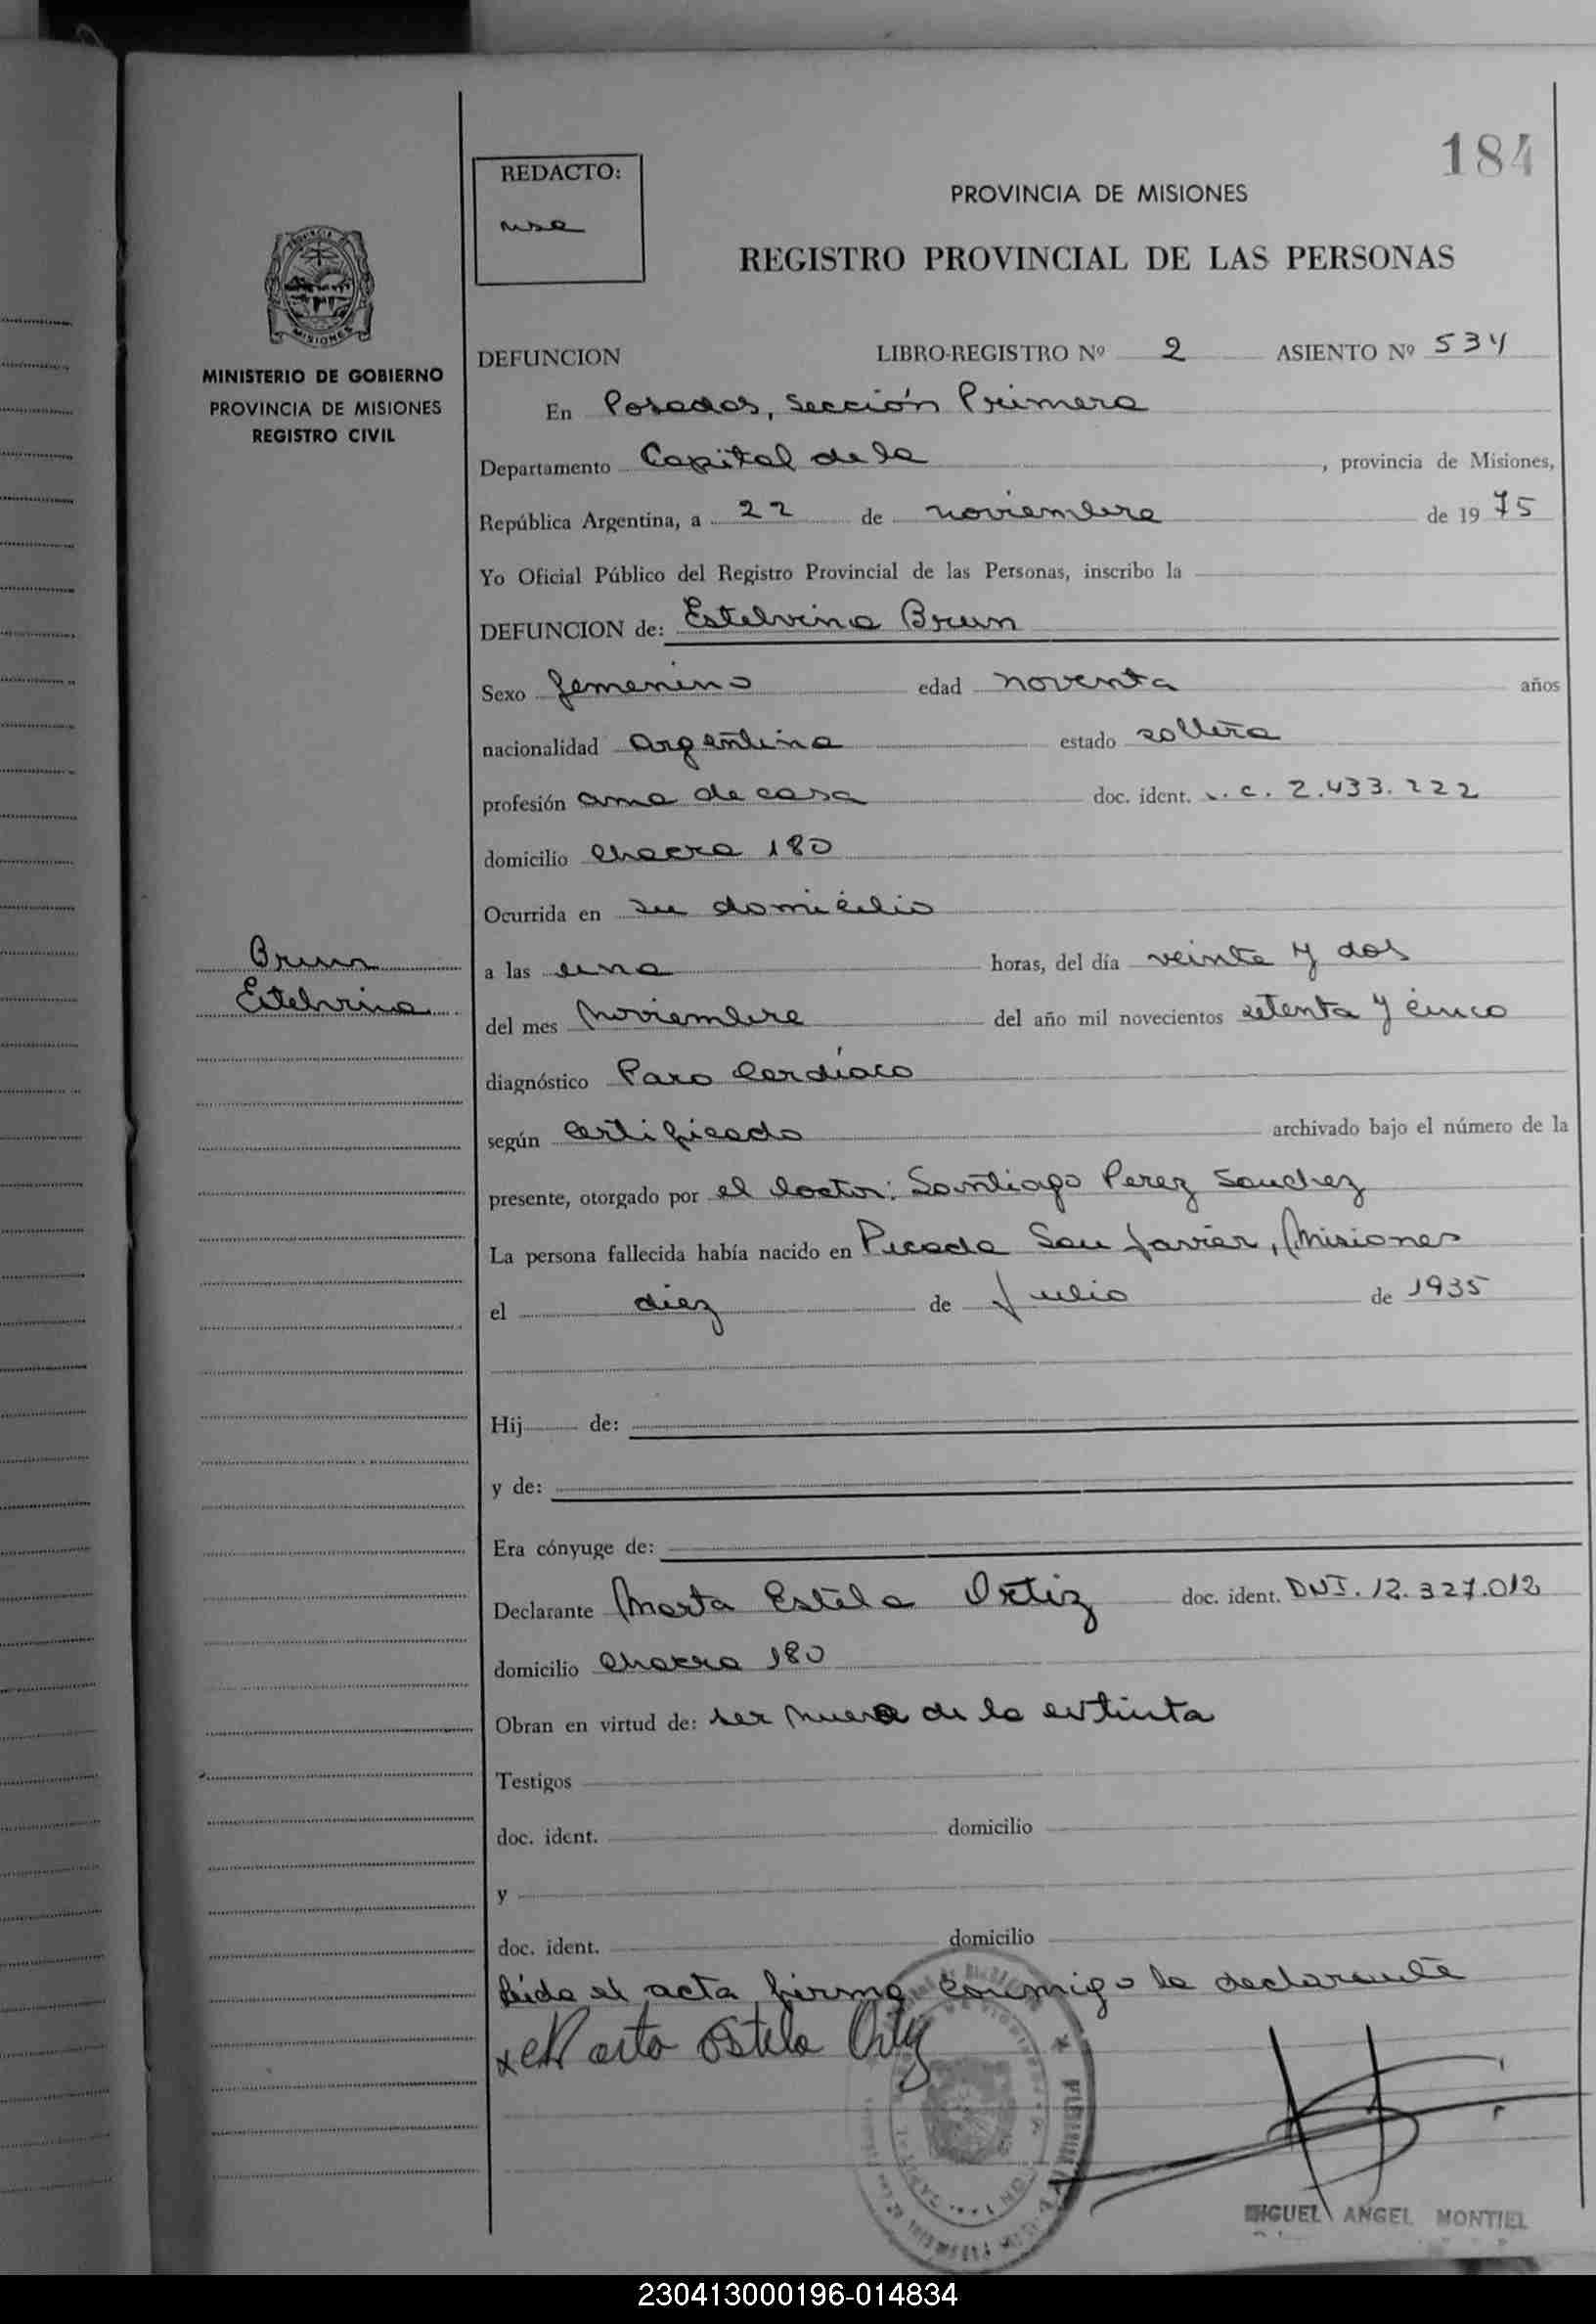 184
REDACTO:
PROVINCIA DE MISIONES
REGISTRO PROVINCIAL DE LAS PERSONAS
MISIONES
MINISTERIO DE GOBIERNO
PROVINCIA DE MISIONES
REGISTRO CIVIL
DEFUNCION LIBRO-REGISTRO Nº 2 ASIENTO Nº 534
En Posadas, Sección Primera
Departamento Capital de la, provincia de Misiones,
República Argentina, a 22 de noviembre de 1975
Yo Oficial Público del Registro Provincial de las Personas, inscribo la
DEFUNCION de: Estelvina Brun
Sexo femenino edad noventa años
nacionalidad argentina estado soltera
profesión ama de casa doc. ident. c. 2.433.222
domicilio Chacra 180
Ocurrida en su domicilio
Brun
Estelvina
a las una horas, del día veinte y dos
del mes Noviembre del año mil novecientos setenta y cinco
diagnóstico Paro Cardíaco
según Certificado archivado bajo el número de la
presente, otorgado por el doctor: Santiago Perez Sanchez
La persona fallecida había nacido en Picada San Javier, Misiones
el diez de Julio de 1935
Hij de:
y de:
Era cónyuge de:
Declarante Marta Estela Ortiz doc. ident. DNI. 12.327.012
domicilio Chacra 180
Obran en virtud de: ser nuera de la extinta
Testigos
doc. ident. domicilio
y
doc. ident. domicilio
leida el acta firma conmigo la declarante
x Marta Estela Ortiz
MIGUEL ANGEL MONTIEL
230413000196-014834